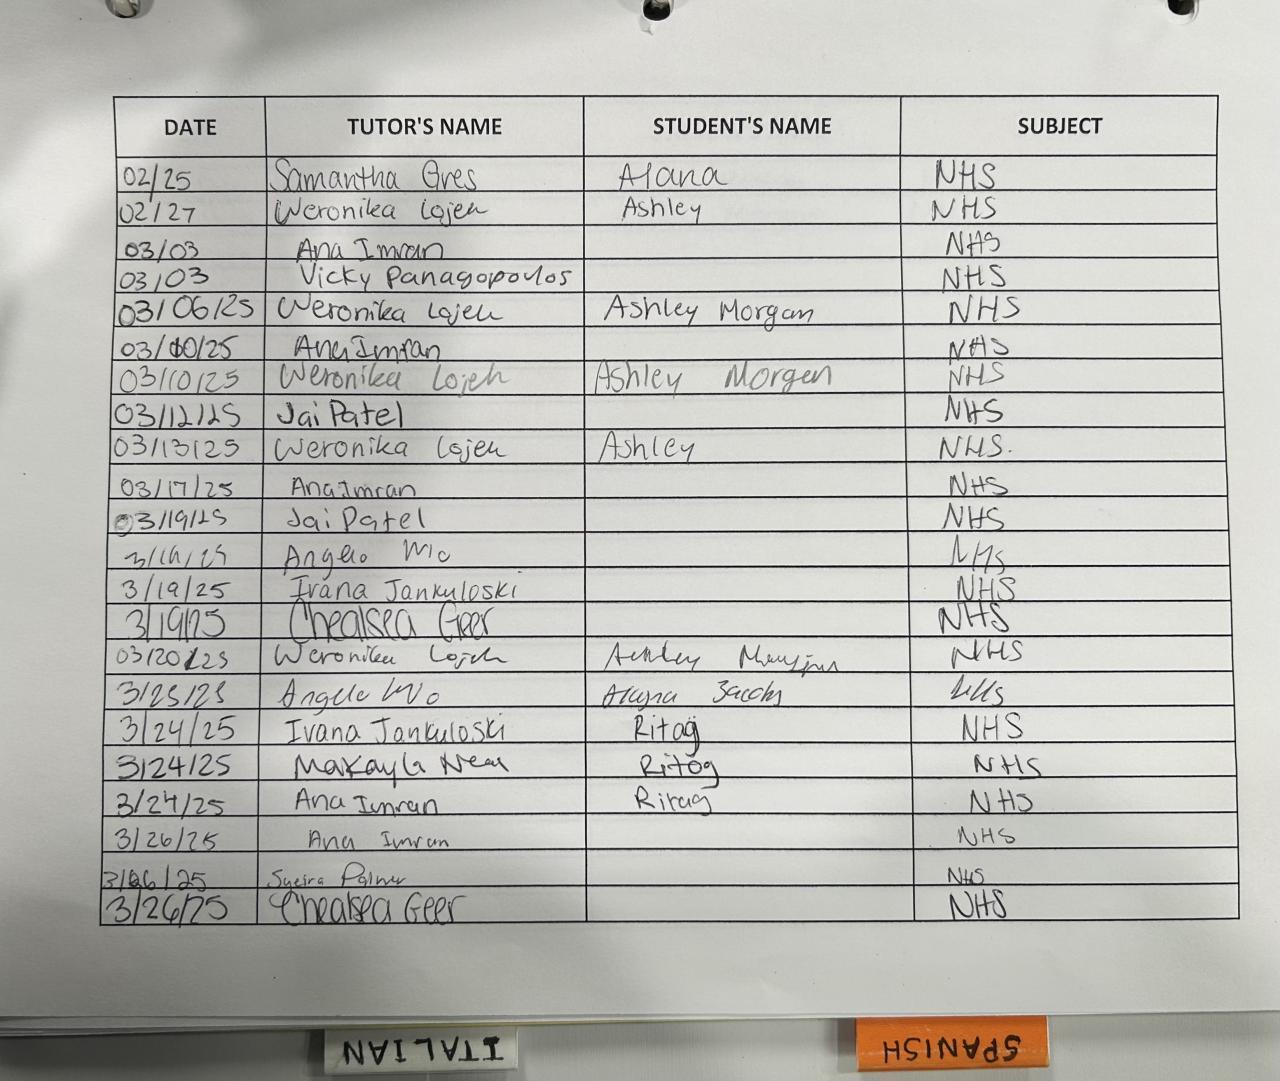 DATE TUTOR'S NAME STUDENT'S NAME SUBJECT
02/25 Samantha Gres Alana NHS
02/27 Weronika Lojek Ashley NHS
03/03 Ana Imran NHS
03/03 Vicky Panagopoulos NHS
03/06/25 Weronika Lojek Ashley Morgan NHS
03/10/25 Ana Imran NHS
03/10/25 Weronika Lojek Ashley Morgan NHS
03/12/25 Jai Patel NHS
03/13/25 Weronika Lojek Ashley NHS.
03/17/25 Ana Imran NHS
03/19/25 Jai Patel NHS
Angelo NHS
3/19/25 Ivana Jankuloski NHS
3/19/25 Chealsea Geer NHS
03/20/25 Weronika Lojek Ashley NHS
3/25/25 Angelo NHS
3/24/25 Ivana Jankuloski Ritag NHS
3/24/25 Makayla Neal Ritag NHS
3/24/25 Ana Imran Ritag NHS
3/26/25 Ana Imran NHS
3/26/25 Palmer NHS
3/26/25 Chealsea Geer NHS
ITALIAN SPANISH